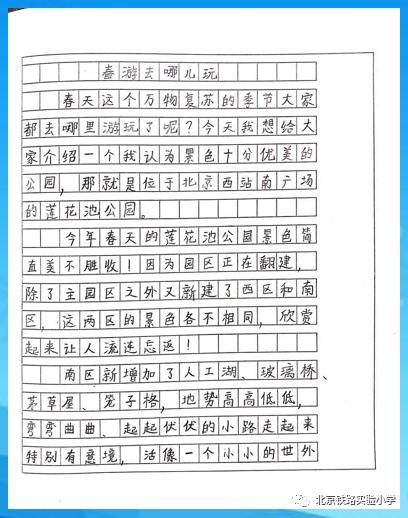 春游去哪儿玩
春天这个万物复苏的季节大家
都去哪里游玩了呢?今天我想给大
家介绍一个我认为景色十分优美的
公园，那就是位于北京西站南广场
的莲花池公园。
今年春天的莲花池公园景色简
直美不胜收!因为园区正在翻建，
除了主园区之外又新建了西区和南
区，这两区的景色各不相同，欣赏
起来让人流连忘返!
南区新增加了人工湖、玻璃桥、
茅草屋、笼子格，地势高高低低，
弯弯曲曲、起起伏伏的小路走起来
特别有意境，活像一个小小的世外
北京铁路实验小学